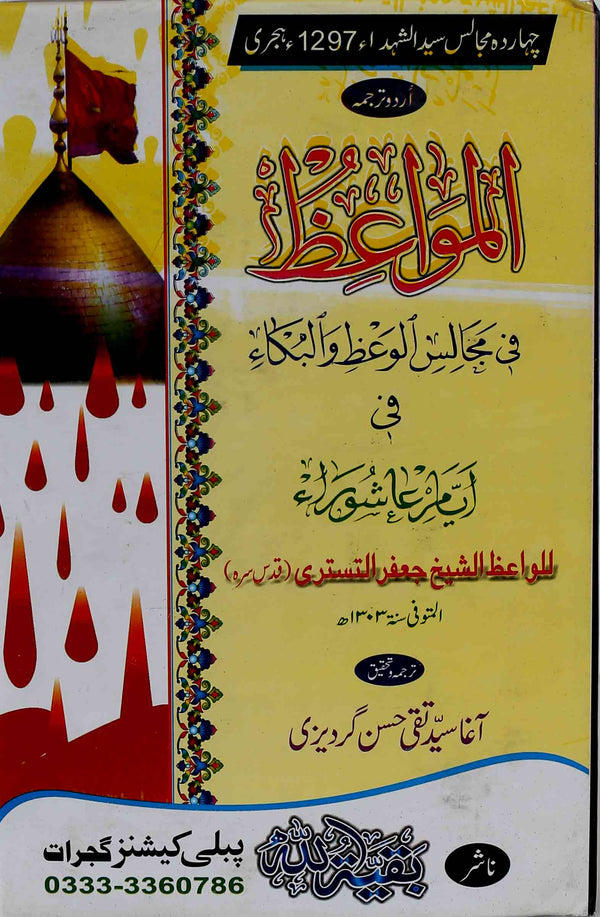 چہاردہ مجالس سید الشہداء 1297ء ہجری
اُردو ترجمہ
المَوَاعِظُ
فِی مَجَالِسِ الوَعْظِ وَالبُكَاءِ
فِی
ایَّامِ عَاشُورَاء
للواعظ الشیخ جعفر التستری (قدس سرہ)
المتوفی سنۃ ۱۳۰۳ھ
ترجمہ و تحقیق
آغا سیّد تقی حسن گردیزی
ناشر
بقیۃ اللہ پبلی کیشنز گجرات
0333-3360786